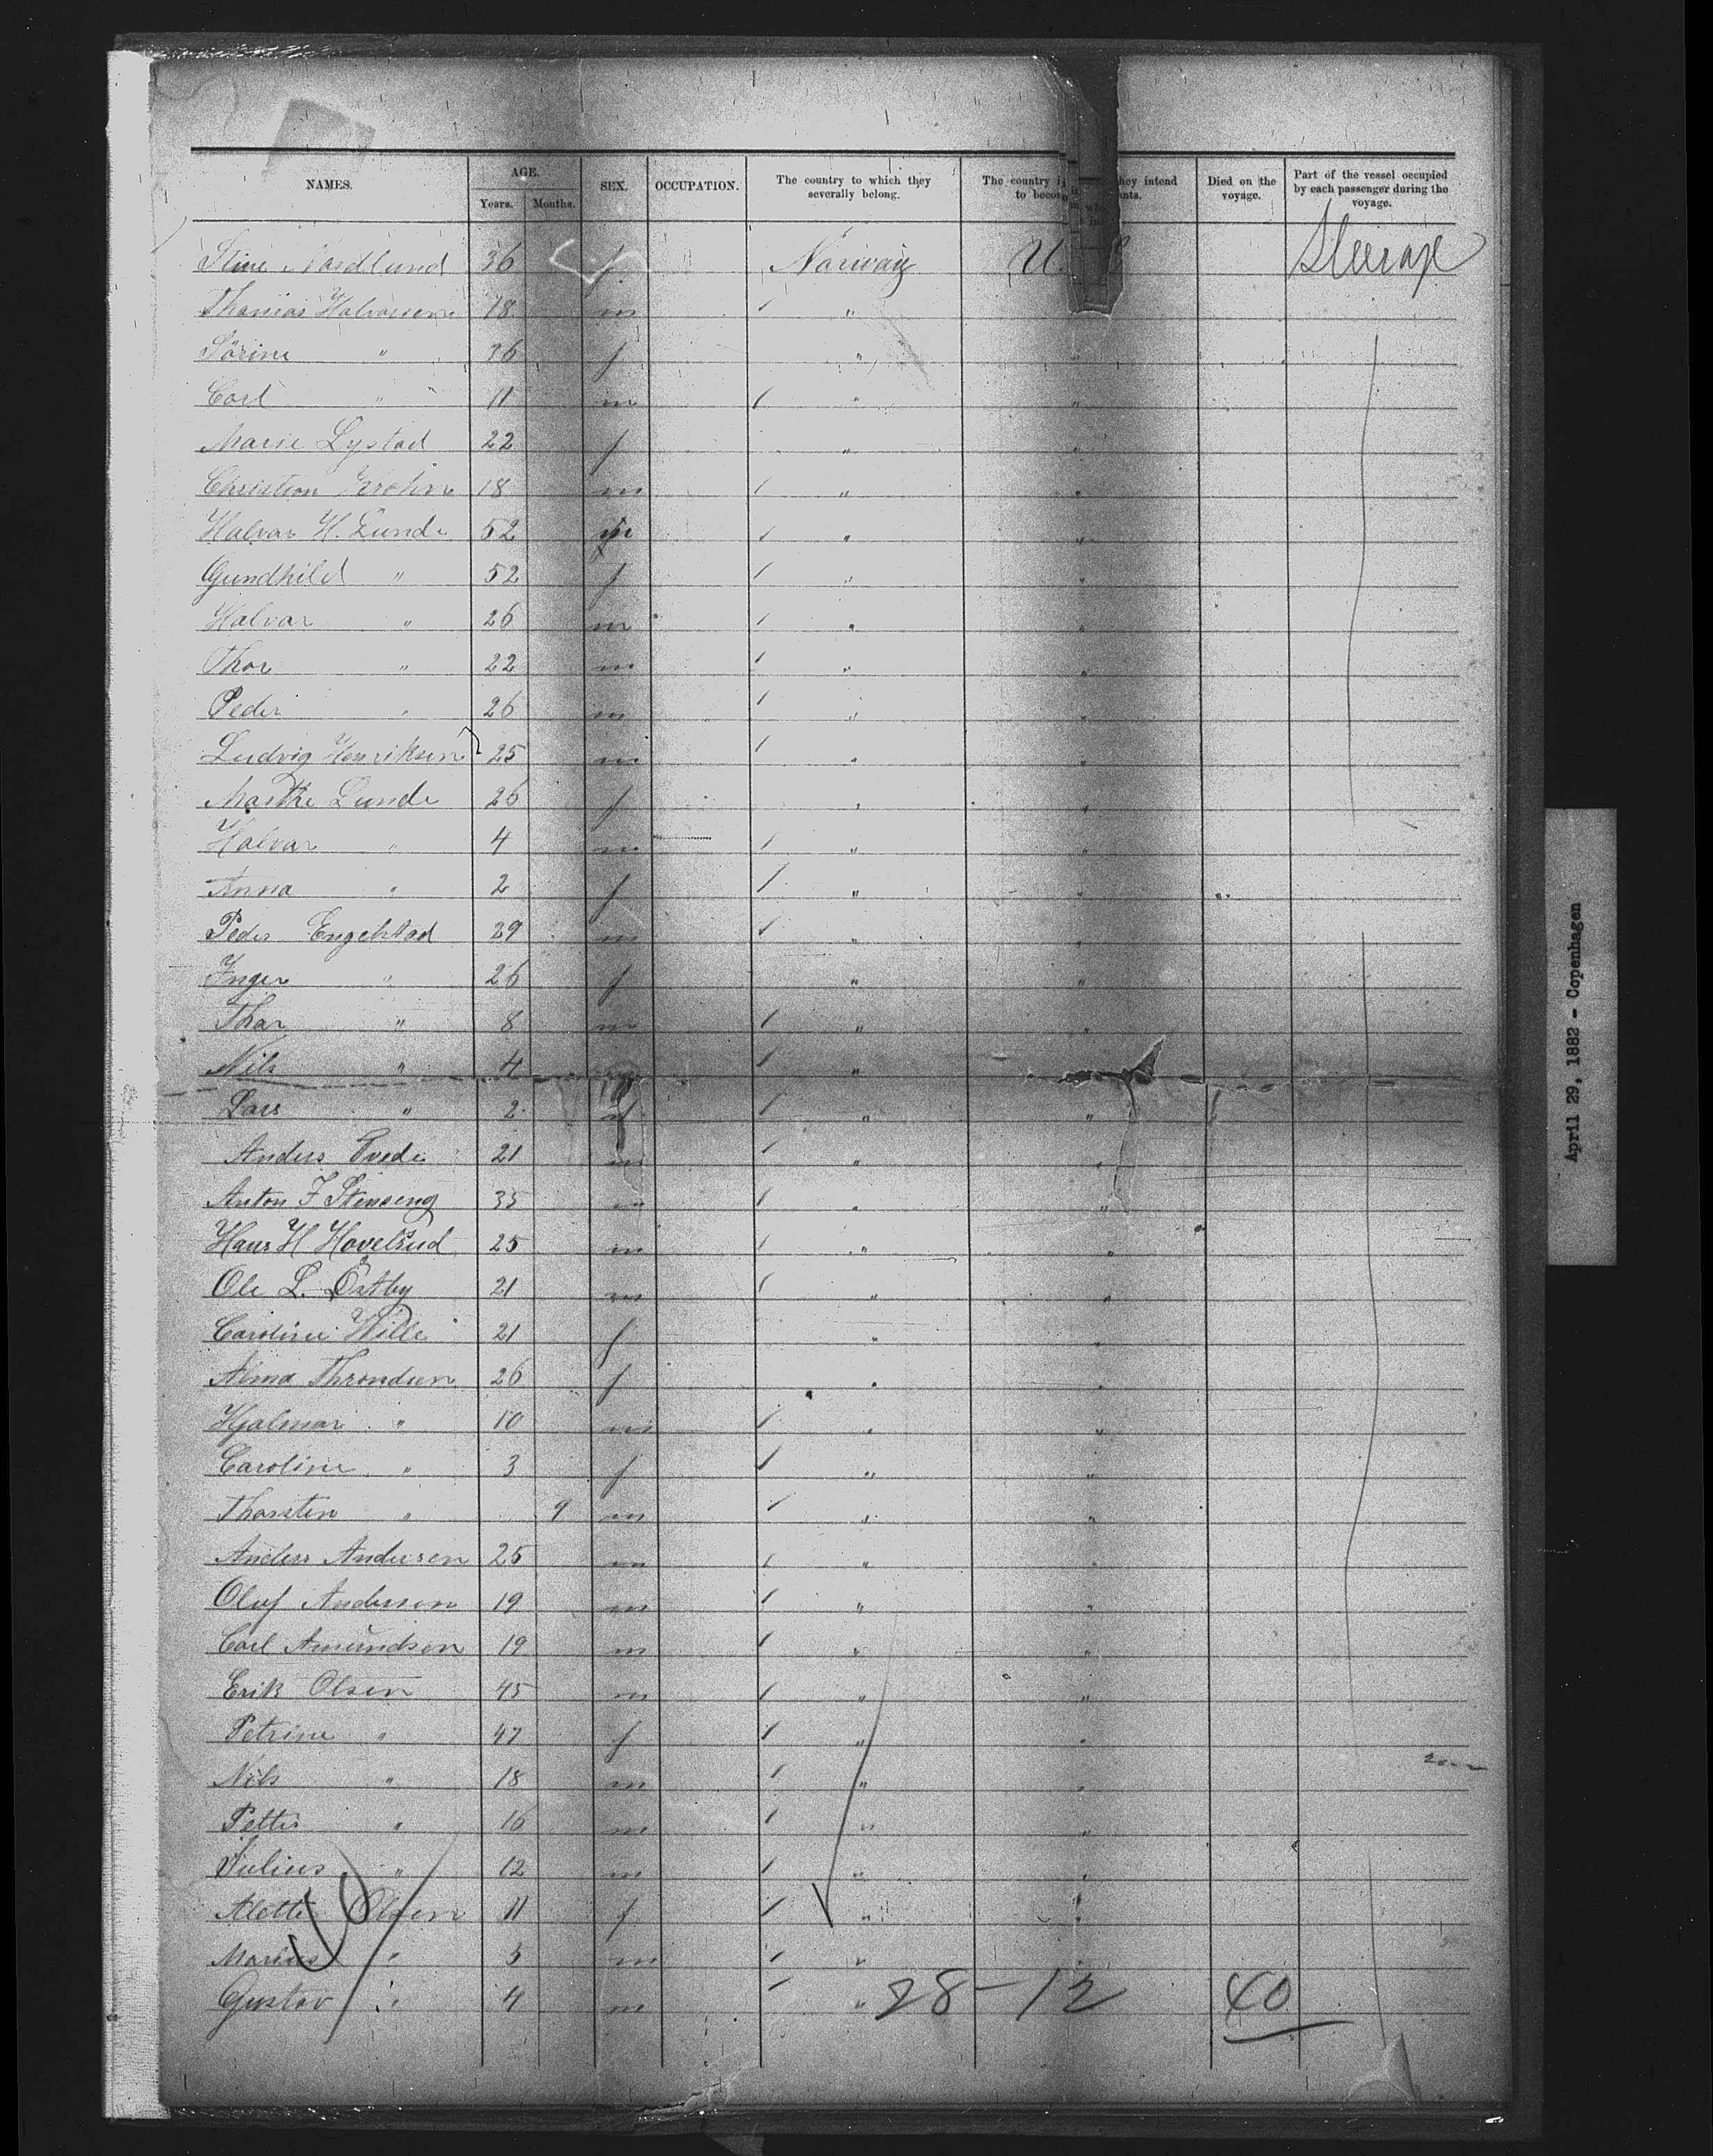 NAMES. AGE. Years. Months. SEX. OCCUPATION. The country to which they severally belong. The country they intend to Died on the voyage. Part of the vessel occupied by each passenger during the voyage.
Stine Nordlund 36 f Norway U. Steerage
Thomas Halvorsen 18 m " "
Sörine " 36 f " "
Carl " 11 m / " "
Marie Lystad 22 f " "
Christian Krohn 18 m / " "
Halvar H. Lunde 52 m / " "
Gundhild " 52 f / " "
Halvar " 26 m / " "
Thor " 22 m / " "
Peder " 26 m / " "
Ludvig Henriksen 25 m / " "
Marthe Lunde 26 f " "
Halvar " 4 m / " "
Anna " 2 f / " "
Peder Engelstad 29 m / " "
Inger " 26 f " "
Thor " 8 m / " "
Nils " 4 / "
Lars " 2 / " "
Anders 21 m / " "
Anton F Stenseng 35 m / " "
Hans H Hovelsrud 25 m / " "
Ole L. Östby 21 m / " "
Caroline Wille 21 f " "
Alma Throndsen 26 f " "
Hjalmar " 10 m / " "
Caroline " 3 f / " "
Thorsten " 9 m / " "
Anders Andersen 25 m / " "
Oluf Anderson 19 m / " "
Carl Amundsen 19 m / " "
Erik Olsen 45 m / " "
Petrine " 47 f / " "
Nils " 18 m / " "
Petter " 16 m / " "
Julius " 12 m / " "
Alette Olsen 11 f / " "
Marius " 5 m / " "
Gustav " 4 m / " 28-12 40
April 29, 1882 - Copenhagen